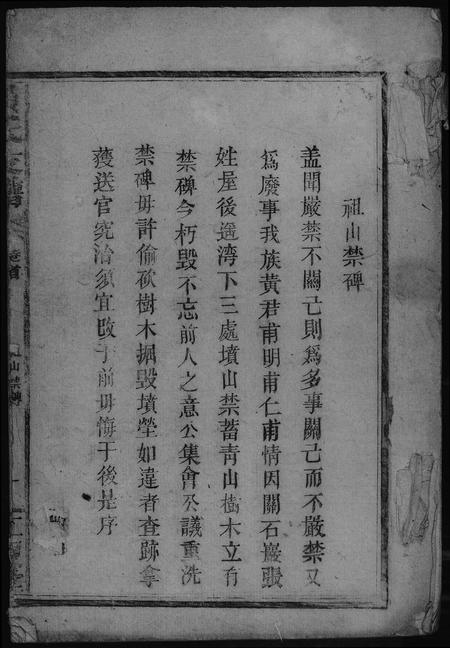 祖山禁碑
盖聞嚴禁不關己則爲多事關己而不嚴禁又
爲廢事我族黃君甫明甫仁甫情因關石巖張
姓屋後邊湾下三處墳山禁蓄青山樹木立有
禁碑今朽毀不忘前人之意公集會仝議重洗
禁碑毋許偷砍樹木掘毀墳塋如違者查跡拿
獲送官究治須宜改于前毋悔于後是序
卷首
山禁碑